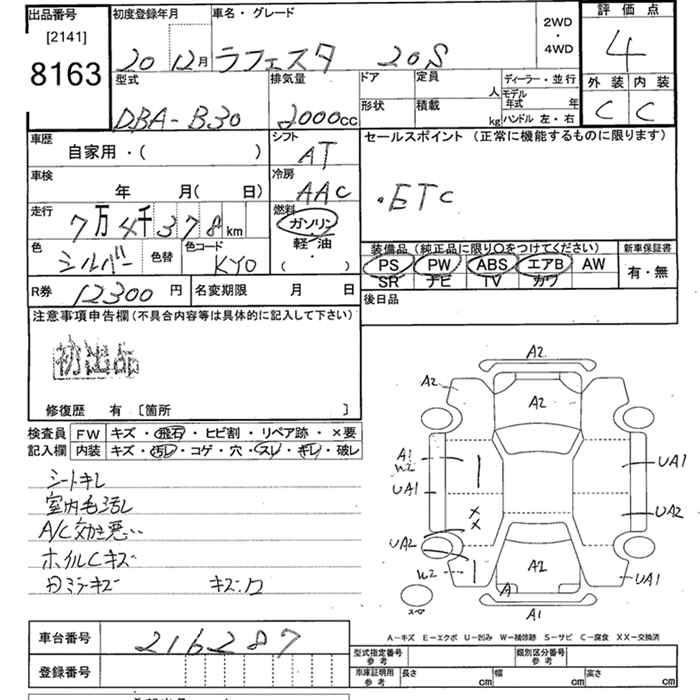 出品番号
[2141]
8163
初度登録年月
20 12月
車名・グレード
ラフェスタ 20S
2WD
・
4WD
評価点
4
外装 内装
C C
型式
DBA-B30
排気量
2000cc
ドア
形状
定員
人
積載
kg
ディーラー・並行
モデル年式 年
ハンドル 左・右
車歴
自家用・( )
シフト
AT
セールスポイント (正常に機能するものに限ります)
・ETC
車検
年 月( 日)
冷房
AAC
走行
7万4千378km
燃料
ガソリン
軽・油
( ・ )
色
シルバー
色替
色コード
KY0
装備品 (純正品に限り〇をつけてください)
PS PW ABS エアB AW
SR ナビ TV カワ
新車保証書
有・無
R券 12300円
名変期限 月 日
後日品
注意事項申告欄(不具合内容等は具体的に記入して下さい)
初出品
修復歴 有 [箇所 ]
検査員
記入欄
FW キズ・飛石・ヒビ割・リペア跡・×要
内装 キズ・汚レ・コゲ・穴・スレ・キレ・破レ
シートキレ
室内毛汚レ
A/C効き悪い
ホイルCキズ
キズ.凹
A2
A2
A2
A1
W2
UA1
UA1
UA2
UA2
W2
A2
A
UA1
A1
スペア
A-キズ E-エクボ U-凹み W-補修跡 S-サビ C-腐食 XX-交換済
車台番号
216287
登録番号
型式指定番号
参考
類別区分番号
参考
車庫証明用
参考
長さ cm
幅 cm
高さ cm